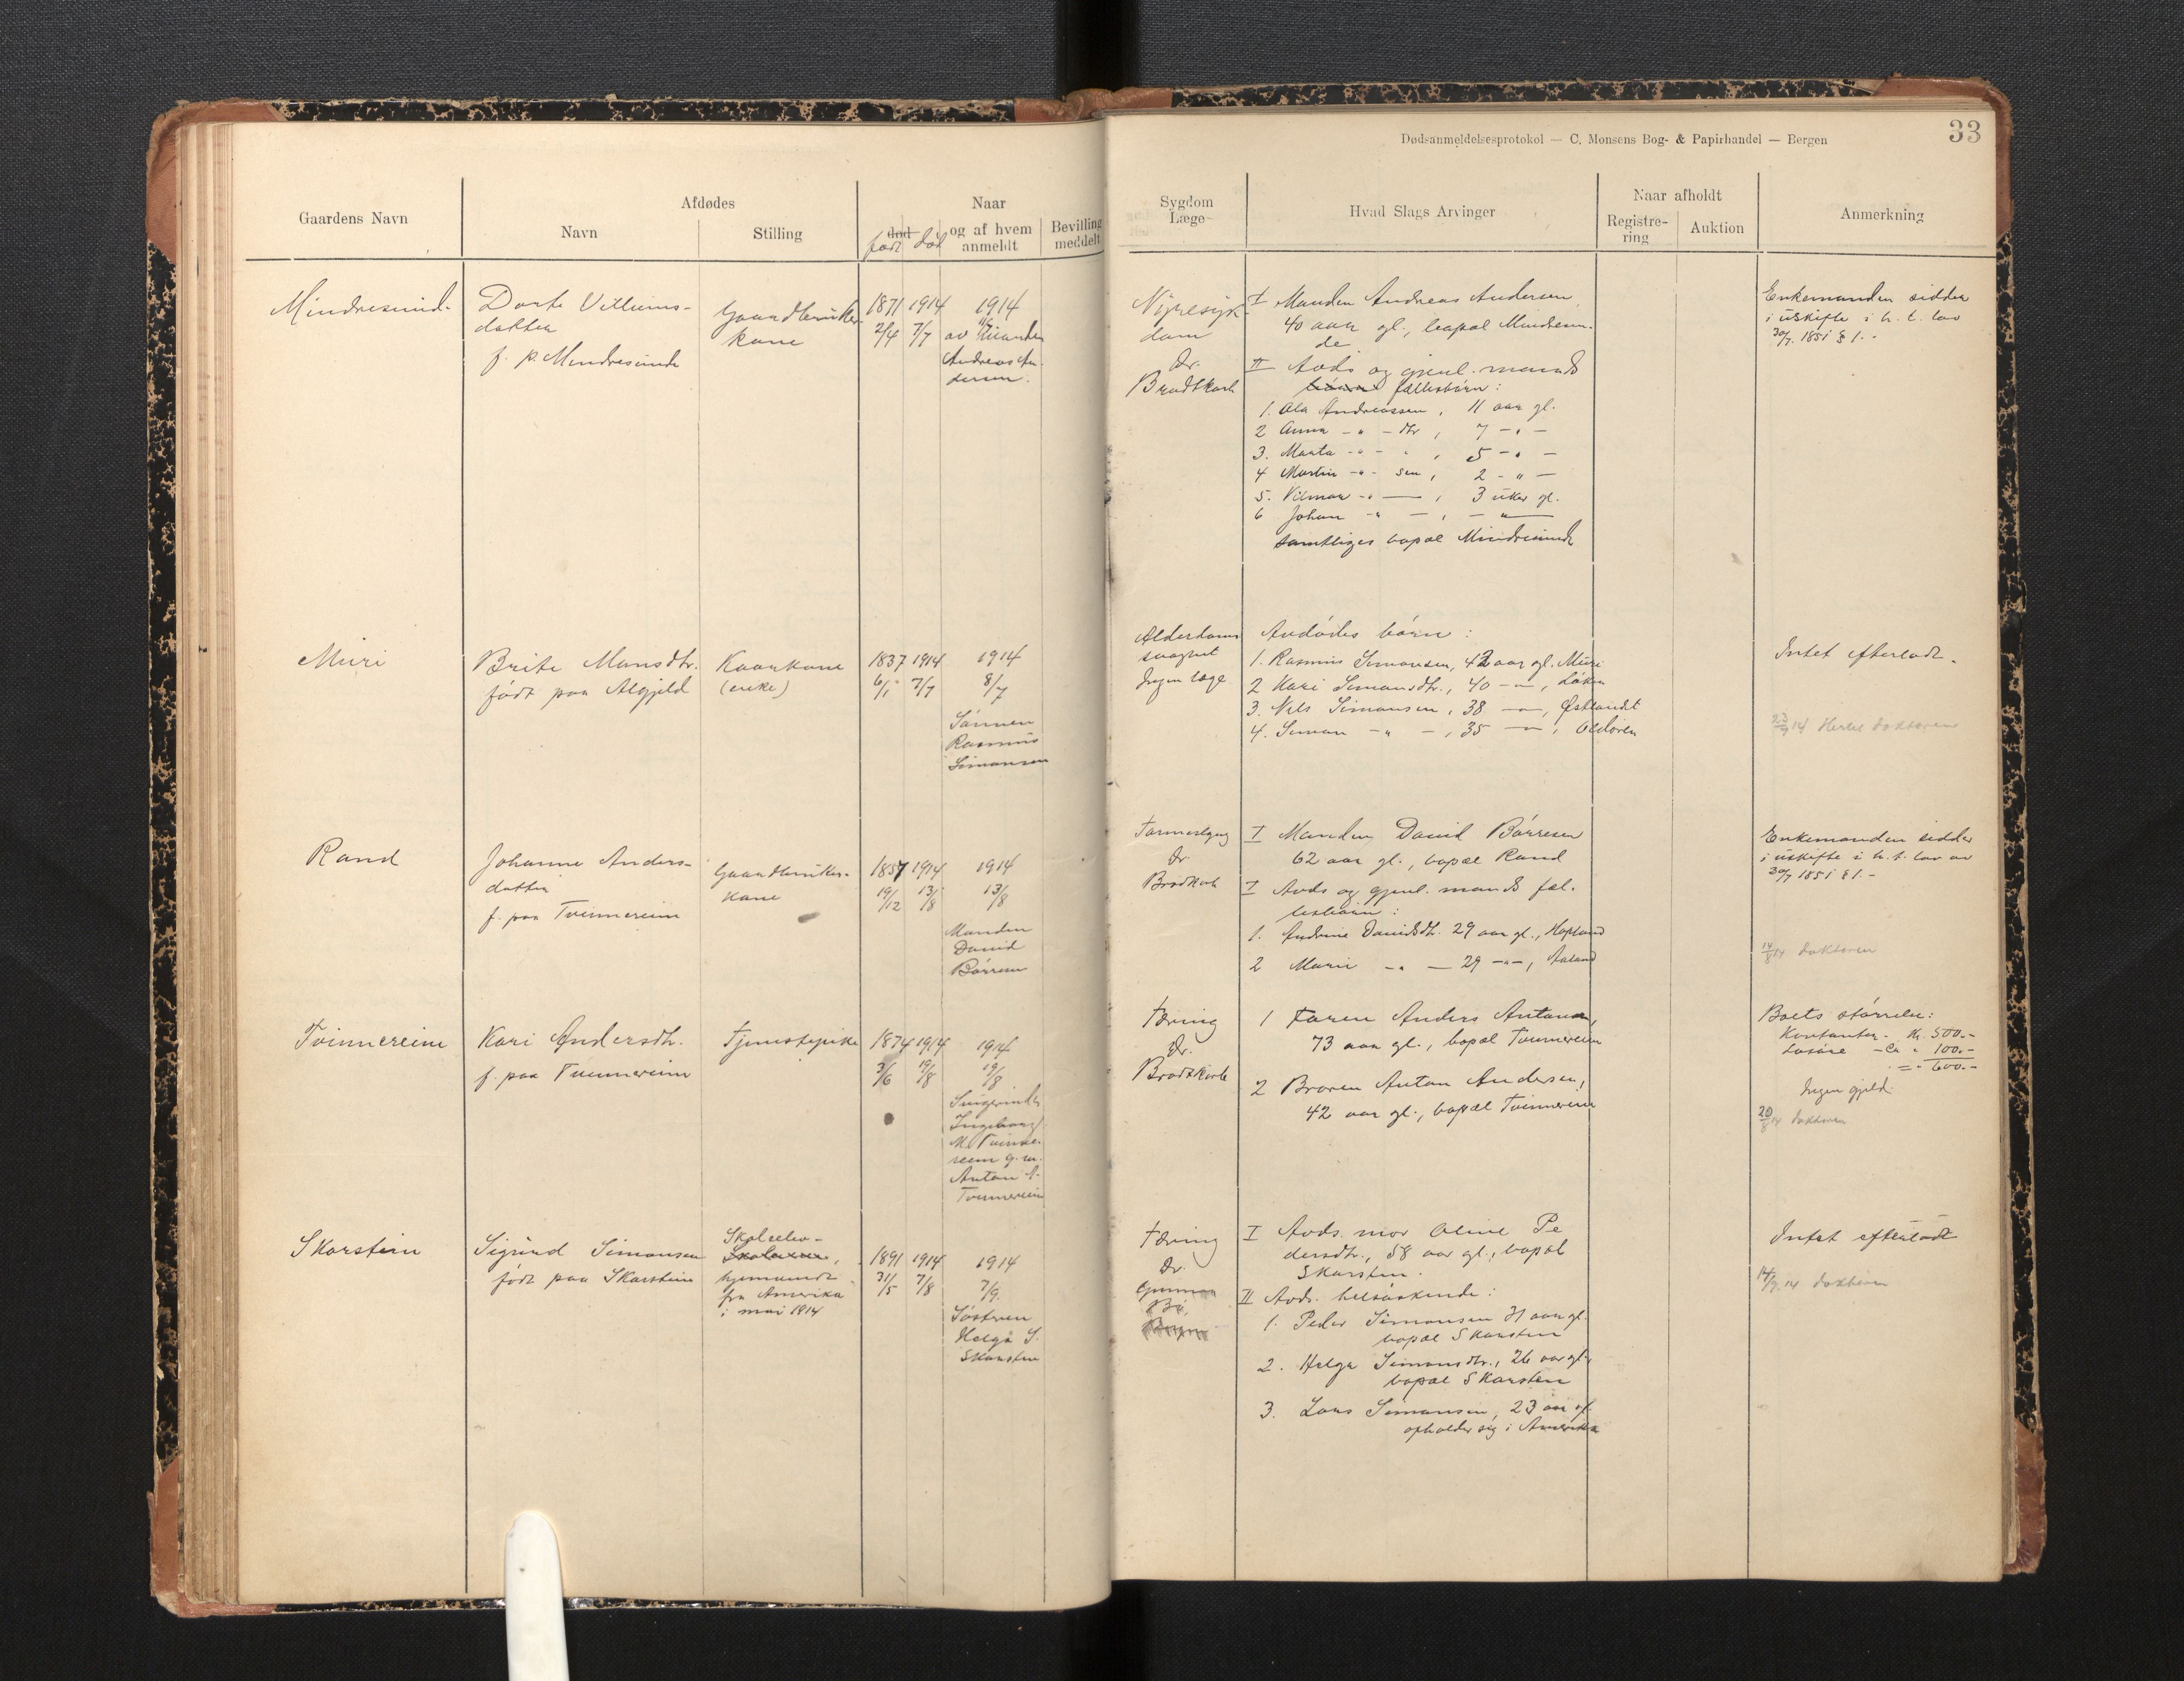 Dødsanmeldelsesprotokol — C. Monsens Bog- & Papirhandel — Bergen
33
Gaardens Navn
Afdødes
Navn
Stilling
Naar
død
født død
og af hvem
anmeldt
Bevilling
meddelt
Sygdom
Læge
Hvad Slags Arvinger
Naar afholdt
Registre-
ring
Auktion
Anmerkning
Mindresund
Dorte Villums-
datter
f. p. Mindresunde
Gaardbruker-
kone
1871 1914 1914
2/4 7/7
av Manden
Andreas An-
dersen.
Nyresyk-
dom
Dr.
Bradtkorb
I Manden Andreas Andersen
40 aar gl., bopæl Mindresun-
de
II Avds og gjenl. mands
børn fællesbørn:
1. Ola Andreassen, 11 aar gl.
2 Anna -"- dtr, 7 -"-
3. Marta -"- " , 5 -"-
4 Martin -"- sen, 2 -"-
5. Vilmar -"- — , 3 uker gl.
6 Johan -"- — , -"-
samtliges bopæl Mindresunde
Enkemanden sidder
i uskifte i h. t. lov
30/7 1851 § 1. -
Muri
Brite Mansdtr.
født paa Algjeld
Kaarkone
(enke)
1837 1914 1914
6/1 7/7 8/7
Sønnen
Rasmus
Simonsen
Alderdoms
svaghet
Ingen læge
Avdødes børn:
1. Rasmus Simonsen, 42 aar gl. Muri
2 Kari Simonsdtr., 40 -"-, Løken
3. Nils Simonsen, 38 -"-, Østlandet
4. Simon -"- , 35 -"-, Oldøren
Intet efterladt.
14 Herbe doktoren
Rand
Johanne Anders-
datter
f. paa Tvinnereim
Gaardbruker-
kone
1857 1914 1914
19/12 13/8 13/8
Manden
David
Børresen
Tarmslyng
Dr.
Bradtkorb
I Manden David Børresen
62 aar gl., bopæl Rand
I Avds og gjenl. mands fæl-
lesbørn:
1. Andrine Davidsdtr. 29 aar gl., Hopland
2 Marie -"- — 29 -"-, Aaland
Enkemanden sidder
i uskifte i h. t. lov av
30/7 1851 § 1. -
14/8 14 doktoren
Tvinnereim
Kari Andersdtr.
f. paa Tvinnereim
Tjenestepike
1874 1914 1914
3/6 19/8 19/8
Svigerinden
Ingeborg
M. Tvinne-
reim g. m.
Anton A.
Tvinnereim
Tæring
Dr.
Bradtkorb
1 Faren Anders Antonsen,
73 aar gl., bopæl Tvinnereim
2 Broren Anton Andersen,
42 aar gl., bopæl Tvinnereim
Boets størrelse:
Kontanter - Kr. 500.-
Løsøre - ca " 100.-
= " 600.-
Ingen gjeld
20/8 14 doktoren
Skarstein
Sigurd Simonsen
født paa Skarstein
Skoleelev-
hjemvendt
fra Amerika
i mai 1914
1891 1914 1914
31/5 7/8 7/9.
Søsteren
Helga S.
Skarsten
Tæring
Dr.
I Avds. mor Oline Pe
dersdtr., 58 aar gl., bopæl
Skarsten.
II Avds. helsøskende:
1. Peder Simonsen 31 aar gl.
bopæl Skarsten
2. Helga Simonsdtr., 26 aar gl.,
bopæl Skarsten
3. Lars Simonsen, 23 aar gl.
opholder sig i Amerika
Intet efterladt
14/9 14 doktoren